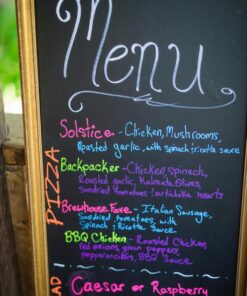 Menu
PIZZA
Solstice - Chicken, Mushrooms,
Roasted garlic, with spinach & ricotta sauce
Backpacker - Chicken, spinach,
Roasted garlic, Kalmata Olives,
sundried tomatoes + artichoke hearts
Brewhouse Fave - Italian Sausage,
Sundried tomatoes, with
Spinach & Ricotta Sauce
BBQ Chicken - Roasted Chicken,
red onions, green peppers,
pepperoncinis, BBQ Sauce
Caesar or Raspberry